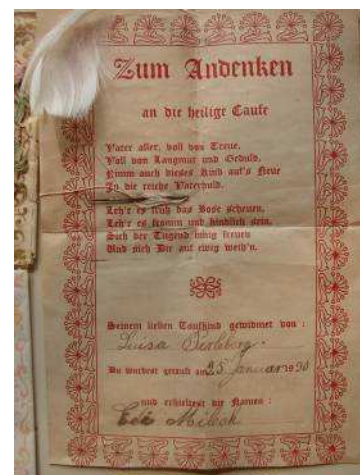 Zum Andenken
an die heilige Taufe
Vater aller, voll von Treue,
Voll von Langmut und Geduld,
Nimm auch dieses Kind auf's Neue
In die reiche Vaterhuld.
Lehr' es früh das Böse scheuen,
Lehr' es fromm und kindlich sein,
Sich der Tugend innig freuen
Und sich Dir auf ewig weih'n.
Seinem lieben Taufkind gewidmet von :
Luisa
Du wurdest getauft am 25 Januar 1930
und erhieltest die Namen :